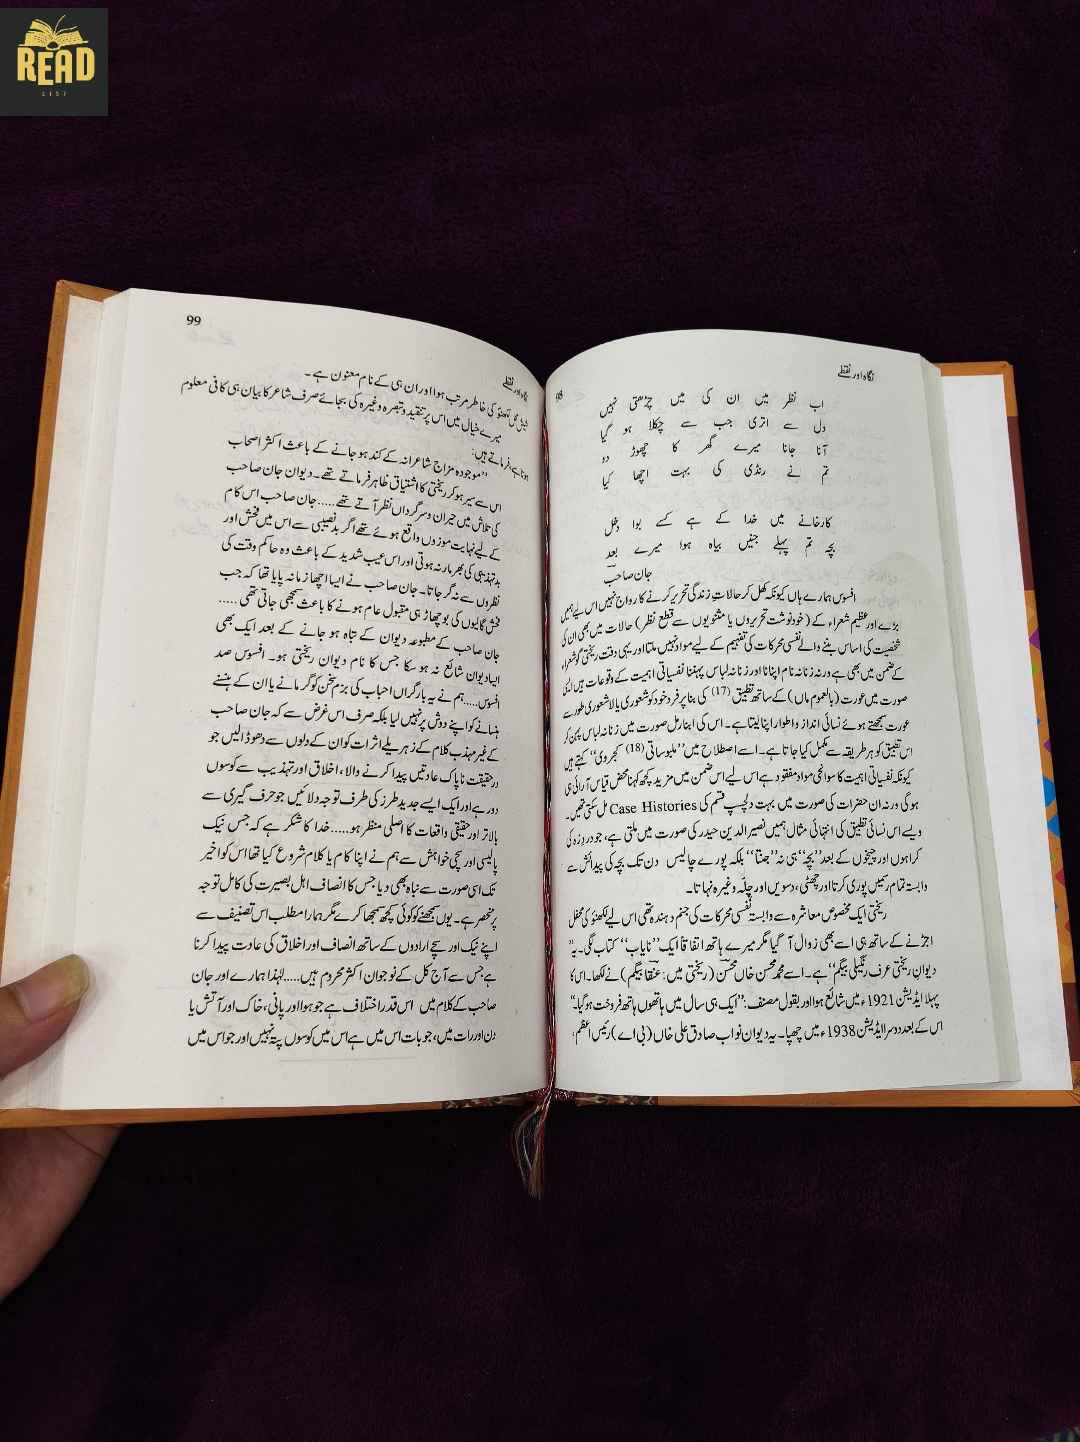 READ
LIST
نگاہ اور نقطے
98
اب نظر میں ان کی میں چڑھتی نہیں
دل سے اتری جب سے چکلا ہو گیا
آنا جانا میرے گھر کا چھوڑ دو
تم نے رنڈی کی بہت اچھا کیا
کارخانے میں خدا کے ہے کسے بوا دخل
بچہ تم پہلے جنیں بیاہ ہوا میرے بعد
جان صاحب
افسوس ہمارے ہاں کیونکہ کھل کر حالاتِ زندگی تحریر کرنے کا رواج نہیں اس لیے ہمیں
بڑے اور عظیم شعراء کے (خودنوشت تحریروں یا مثنویوں سے قطع نظر) حالات میں بھی ان کی
شخصیت کی اساس بننے والے نفسی محرکات کی تفہیم کے لیے مواد نہیں ملتا اور یہی دقت ریختی گو شعراء
کے ضمن میں بھی ہے ورنہ زنانہ نام اپنانا اور زنانہ لباس پہننا نفسیاتی اہمیت کے وقوعات ہیں ایسی
صورت میں عورت (بالعموم ماں) کے ساتھ تطبیق (17) کی بنا پر فرد خود کو شعوری یا لاشعوری طور سے
عورت سمجھتے ہوئے نسائی انداز و اطوار اپنا لیتا ہے۔ اس کی ابنارمل صورت میں زنانہ لباس پہن کر
اس تطبیق کو ہر طریقہ سے مکمل کیا جاتا ہے۔ اسے اصطلاح میں ”ملبوساتی (18) کجروی“ کہتے ہیں
کیونکہ نفسیاتی اہمیت کا سوانحی مواد مفقود ہے اس لیے اس ضمن میں مزید کچھ کہنا محض قیاس آرائی ہی
ہوگی ورنہ ان حضرات کی صورت میں بہت دلچسپ قسم کی Case Histories مل سکتی تھیں۔
ویسے اس نسائی تطبیق کی انتہائی مثال ہمیں نصیر الدین حیدر کی صورت میں ملتی ہے، جو دردِ زہ کی
کراہوں اور چیخوں کے بعد ”بچہ“ ہی نہ ”جنتا“ بلکہ پورے چالیس دن تک بچہ کی پیدائش سے
وابستہ تمام رسمیں پوری کرتا اور چھٹی، دسویں اور چلّہ وغیرہ نہاتا۔
ریختی ایک مخصوص معاشرہ سے وابستہ نفسی محرکات کی جنم دہندہ تھی اس لیے لکھنؤ کی محفل
اجڑنے کے ساتھ ہی اسے بھی زوال آ گیا مگر میرے ہاتھ اتفاقاً ایک ”نایاب“ کتاب لگی۔ یہ ”
دیوانِ ریختی عرف رنگیلی بیگم“ ہے۔ اسے محمد محسن خاں محسن (ریختی میں: عنقا بیگم) نے لکھا۔ اس کا
پہلا ایڈیشن 1921ء میں شائع ہوا اور بقول مصنف: ”ایک ہی سال میں ہاتھوں ہاتھ فروخت ہو گیا۔“
اس کے بعد دوسرا ایڈیشن 1938ء میں چھپا۔ یہ دیوان نواب صادق علی خاں (بی اے) رئیس اعظم،
نگاہ اور نقطے
99
کی خاطر مرتب ہوا اور ان ہی کے نام معنون ہے۔
میرے خیال میں اس پر تنقید و تبصرہ وغیرہ کی بجائے صرف شاعر کا بیان ہی کافی معلوم
ہوتا ہے فرماتے ہیں:
”موجودہ مزاج شاعرانہ کے کند ہو جانے کے باعث اکثر اصحاب
اس سے سیر ہو کر ریختی کا اشتیاق ظاہر فرماتے تھے۔ دیوان جان صاحب
کی تلاش میں حیران و سرگرداں نظر آتے تھے..... جان صاحب اس کام
کے لیے نہایت موزوں واقع ہوئے تھے اگر بدنصیبی سے اس میں فحش اور
بد تہذیبی کی بھرمار نہ ہوتی اور اس عیب شدید کے باعث وہ حاکم وقت کی
نظروں سے نہ گر جاتا۔ جان صاحب نے ایسا اچھا زمانہ پایا تھا کہ جب
فحش گالیوں کی بوچھاڑ ہی مقبول عام ہونے کا باعث سمجھی جاتی تھی.....
جان صاحب کے مطبوعہ دیوان کے تباہ ہو جانے کے بعد ایک بھی
ایسا دیوان شائع نہ ہو سکا جس کا نام دیوان ریختی ہو۔ افسوس صد
افسوس..... ہم نے یہ بار گراں احباب کی بزم سخن کو گرمانے یا ان کے ہنسنے
ہنسانے کو اپنے دوش پر نہیں لیا بلکہ صرف اس غرض سے کہ جان صاحب
کے غیر مہذب کلام کے زہریلے اثرات کو ان کے دلوں سے دھو ڈالیں جو
درحقیقت ناپاک عادتیں پیدا کرنے والا، اخلاق اور تہذیب سے کوسوں
دور ہے اور ایک ایسے جدید طرز کی طرف توجہ دلائیں جو حرف گیری سے
بالاتر اور حقیقی واقعات کا اصلی منظر ہو..... خدا کا شکر ہے کہ جس نیک
پالیسی اور سچی خواہش سے ہم نے اپنا کام یا کلام شروع کیا تھا اس کو اخیر
تک اسی صورت سے نباہ بھی دیا جس کا انصاف اہل بصیرت کی کامل توجہ
پر منحصر ہے۔ یوں سمجھنے کو کوئی کچھ سمجھا کرے مگر ہمارا مطلب اس تصنیف سے
اپنے نیک اور سچے ارادوں کے ساتھ انصاف اور اخلاق کی عادت پیدا کرنا
ہے جس سے آج کل کے نوجوان اکثر محروم ہیں..... لہٰذا ہمارے اور جان
صاحب کے کلام میں اس قدر اختلاف ہے جو ہوا اور پانی، خاک اور آتش یا
دن اور رات میں، جو بات اس میں ہے اس میں کوسوں پتہ نہیں اور جو اس میں